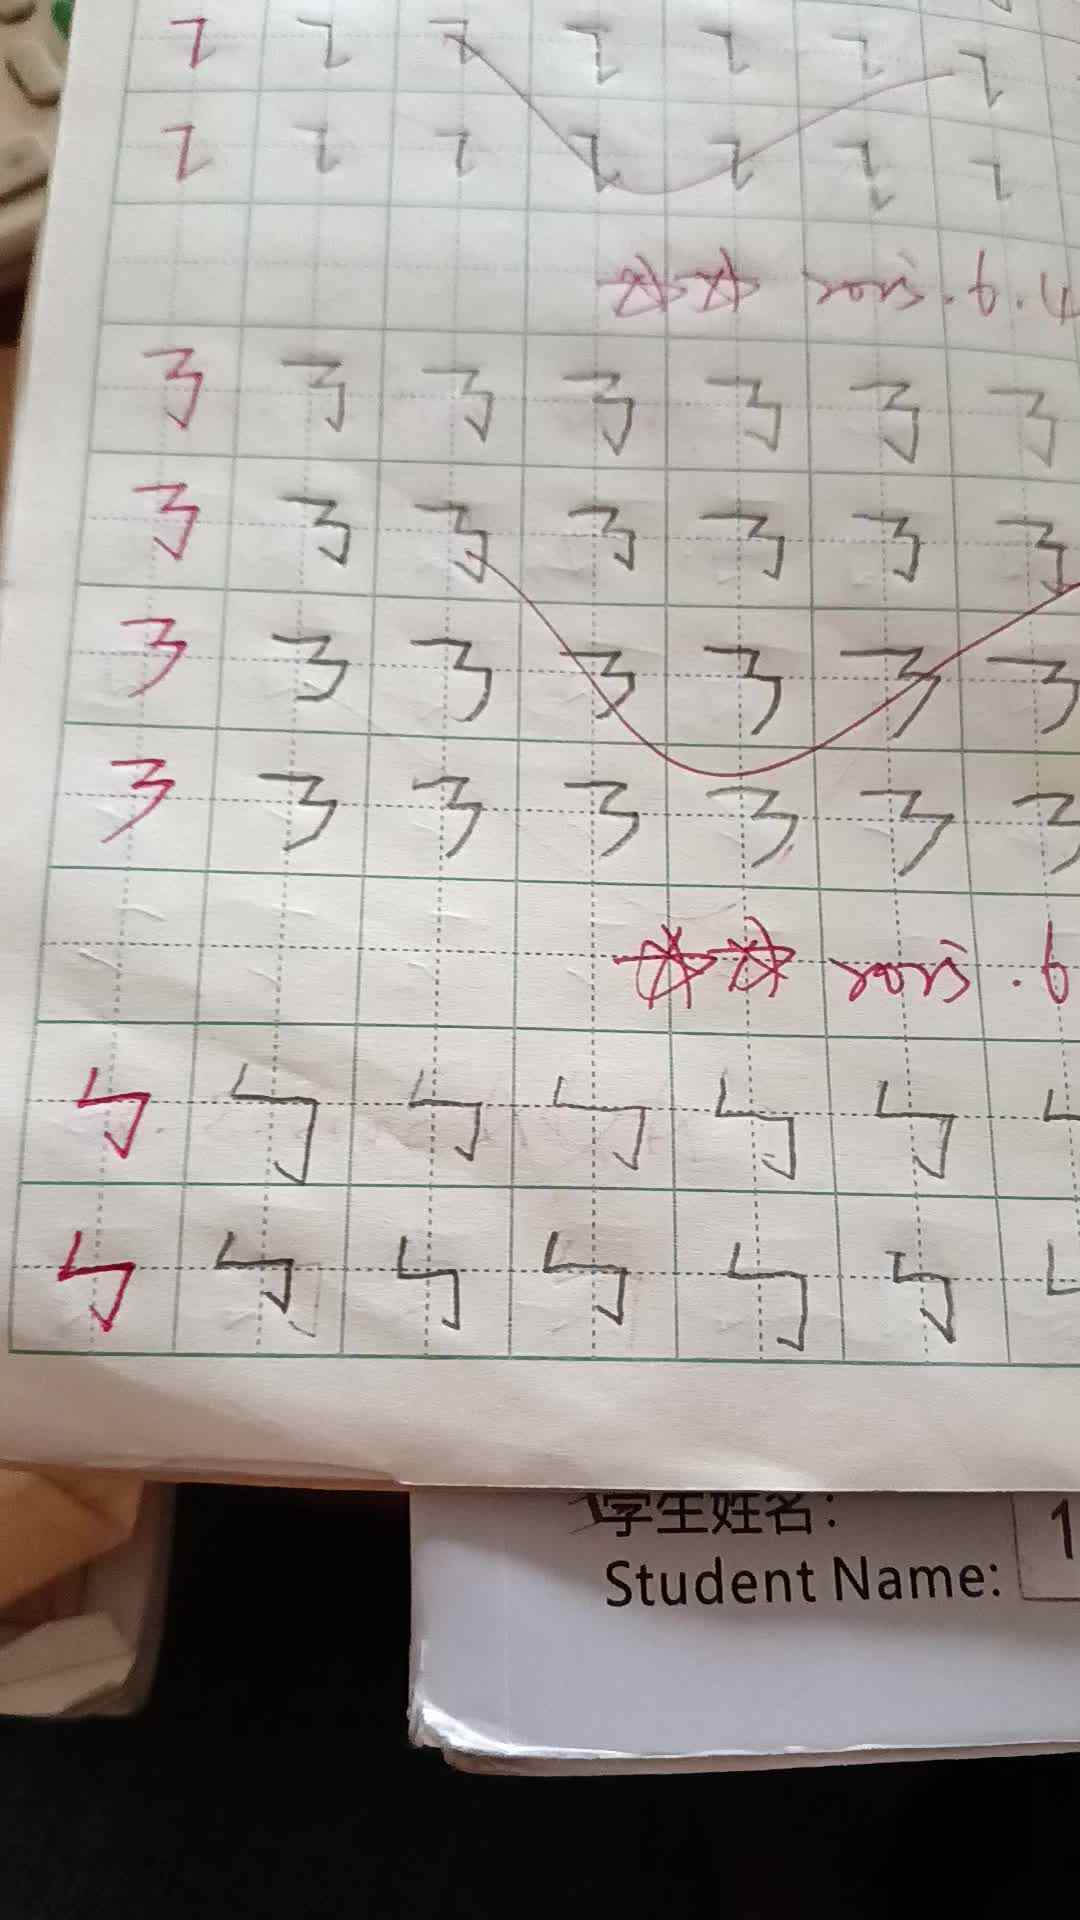 ㇅ ㇅ ㇅ ㇅ ㇅ ㇅ ㇅
㇅ ㇅ ㇅ ㇅ ㇅ ㇅ ㇅
☆☆ 2025.6.4
㇡ ㇡ ㇡ ㇡ ㇡ ㇡ ㇡
㇡ ㇡ ㇡ ㇡ ㇡ ㇡ ㇡
㇡ ㇡ ㇡ ㇡ ㇡ ㇡ ㇡
㇡ ㇡ ㇡ ㇡ ㇡ ㇡ ㇡
☆☆ 2025.6
㇉ ㇉ ㇉ ㇉ ㇉ ㇉
㇉ ㇉ ㇉ ㇉ ㇉ ㇉
学生姓名:
Student Name: 1